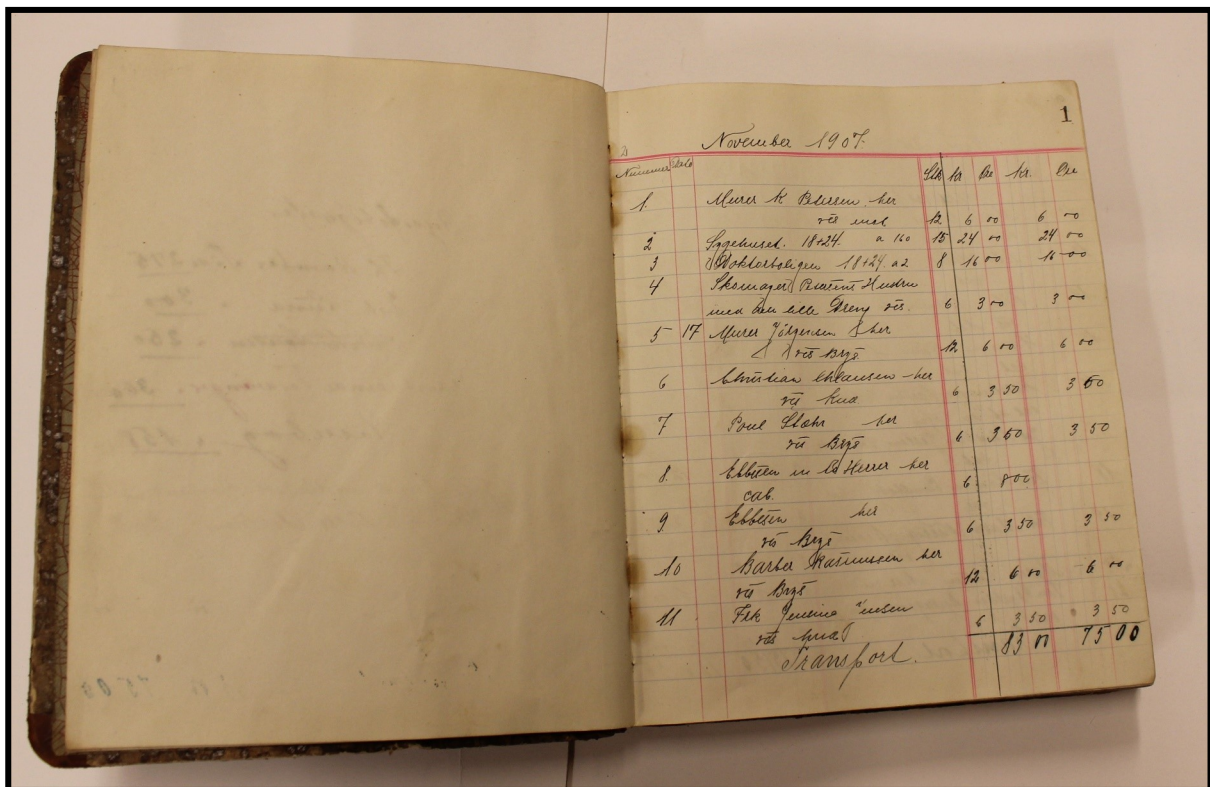 1
November 1907.
Nummer Dato Stk Kr Øre Kr. Øre
1. Murer K Petersen her
vis 12 6 00 6 00
2 Sygehuset. 18+24. a 160 15 24 00 24 00
3 Doktorboligen 18+24. a 2 8 16 00 16 00
4 Skomager Hustru
med den lille Dreng vis. 6 3 00 3 00
5 17 Murer Jörgensen her
vis Bryst 12 6 00 6 00
6 Christian Clausen her
vis Knæ 6 3 50 3 50
7 Poul Stæhr her
vis Bryst 6 3 50 3 50
8. Ebbesen Herrer her
cab. 6 8 00
9 Ebbesen her
vis Bryst 6 3 50 3 50
10 Barber Rasmussen her
vis Bryst 12 6 00 6 00
11 Frk Jensine Jensen
vis Knæ 6 3 50 3 50
Transport. 83 00 75 00